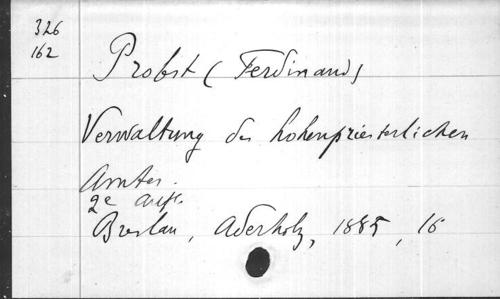 326
162
Probst (Ferdinand)
Verwaltung des hohenpriesterlichen
Amtes.
2e aufl.
Breslau, Aderholz, 1885, 16